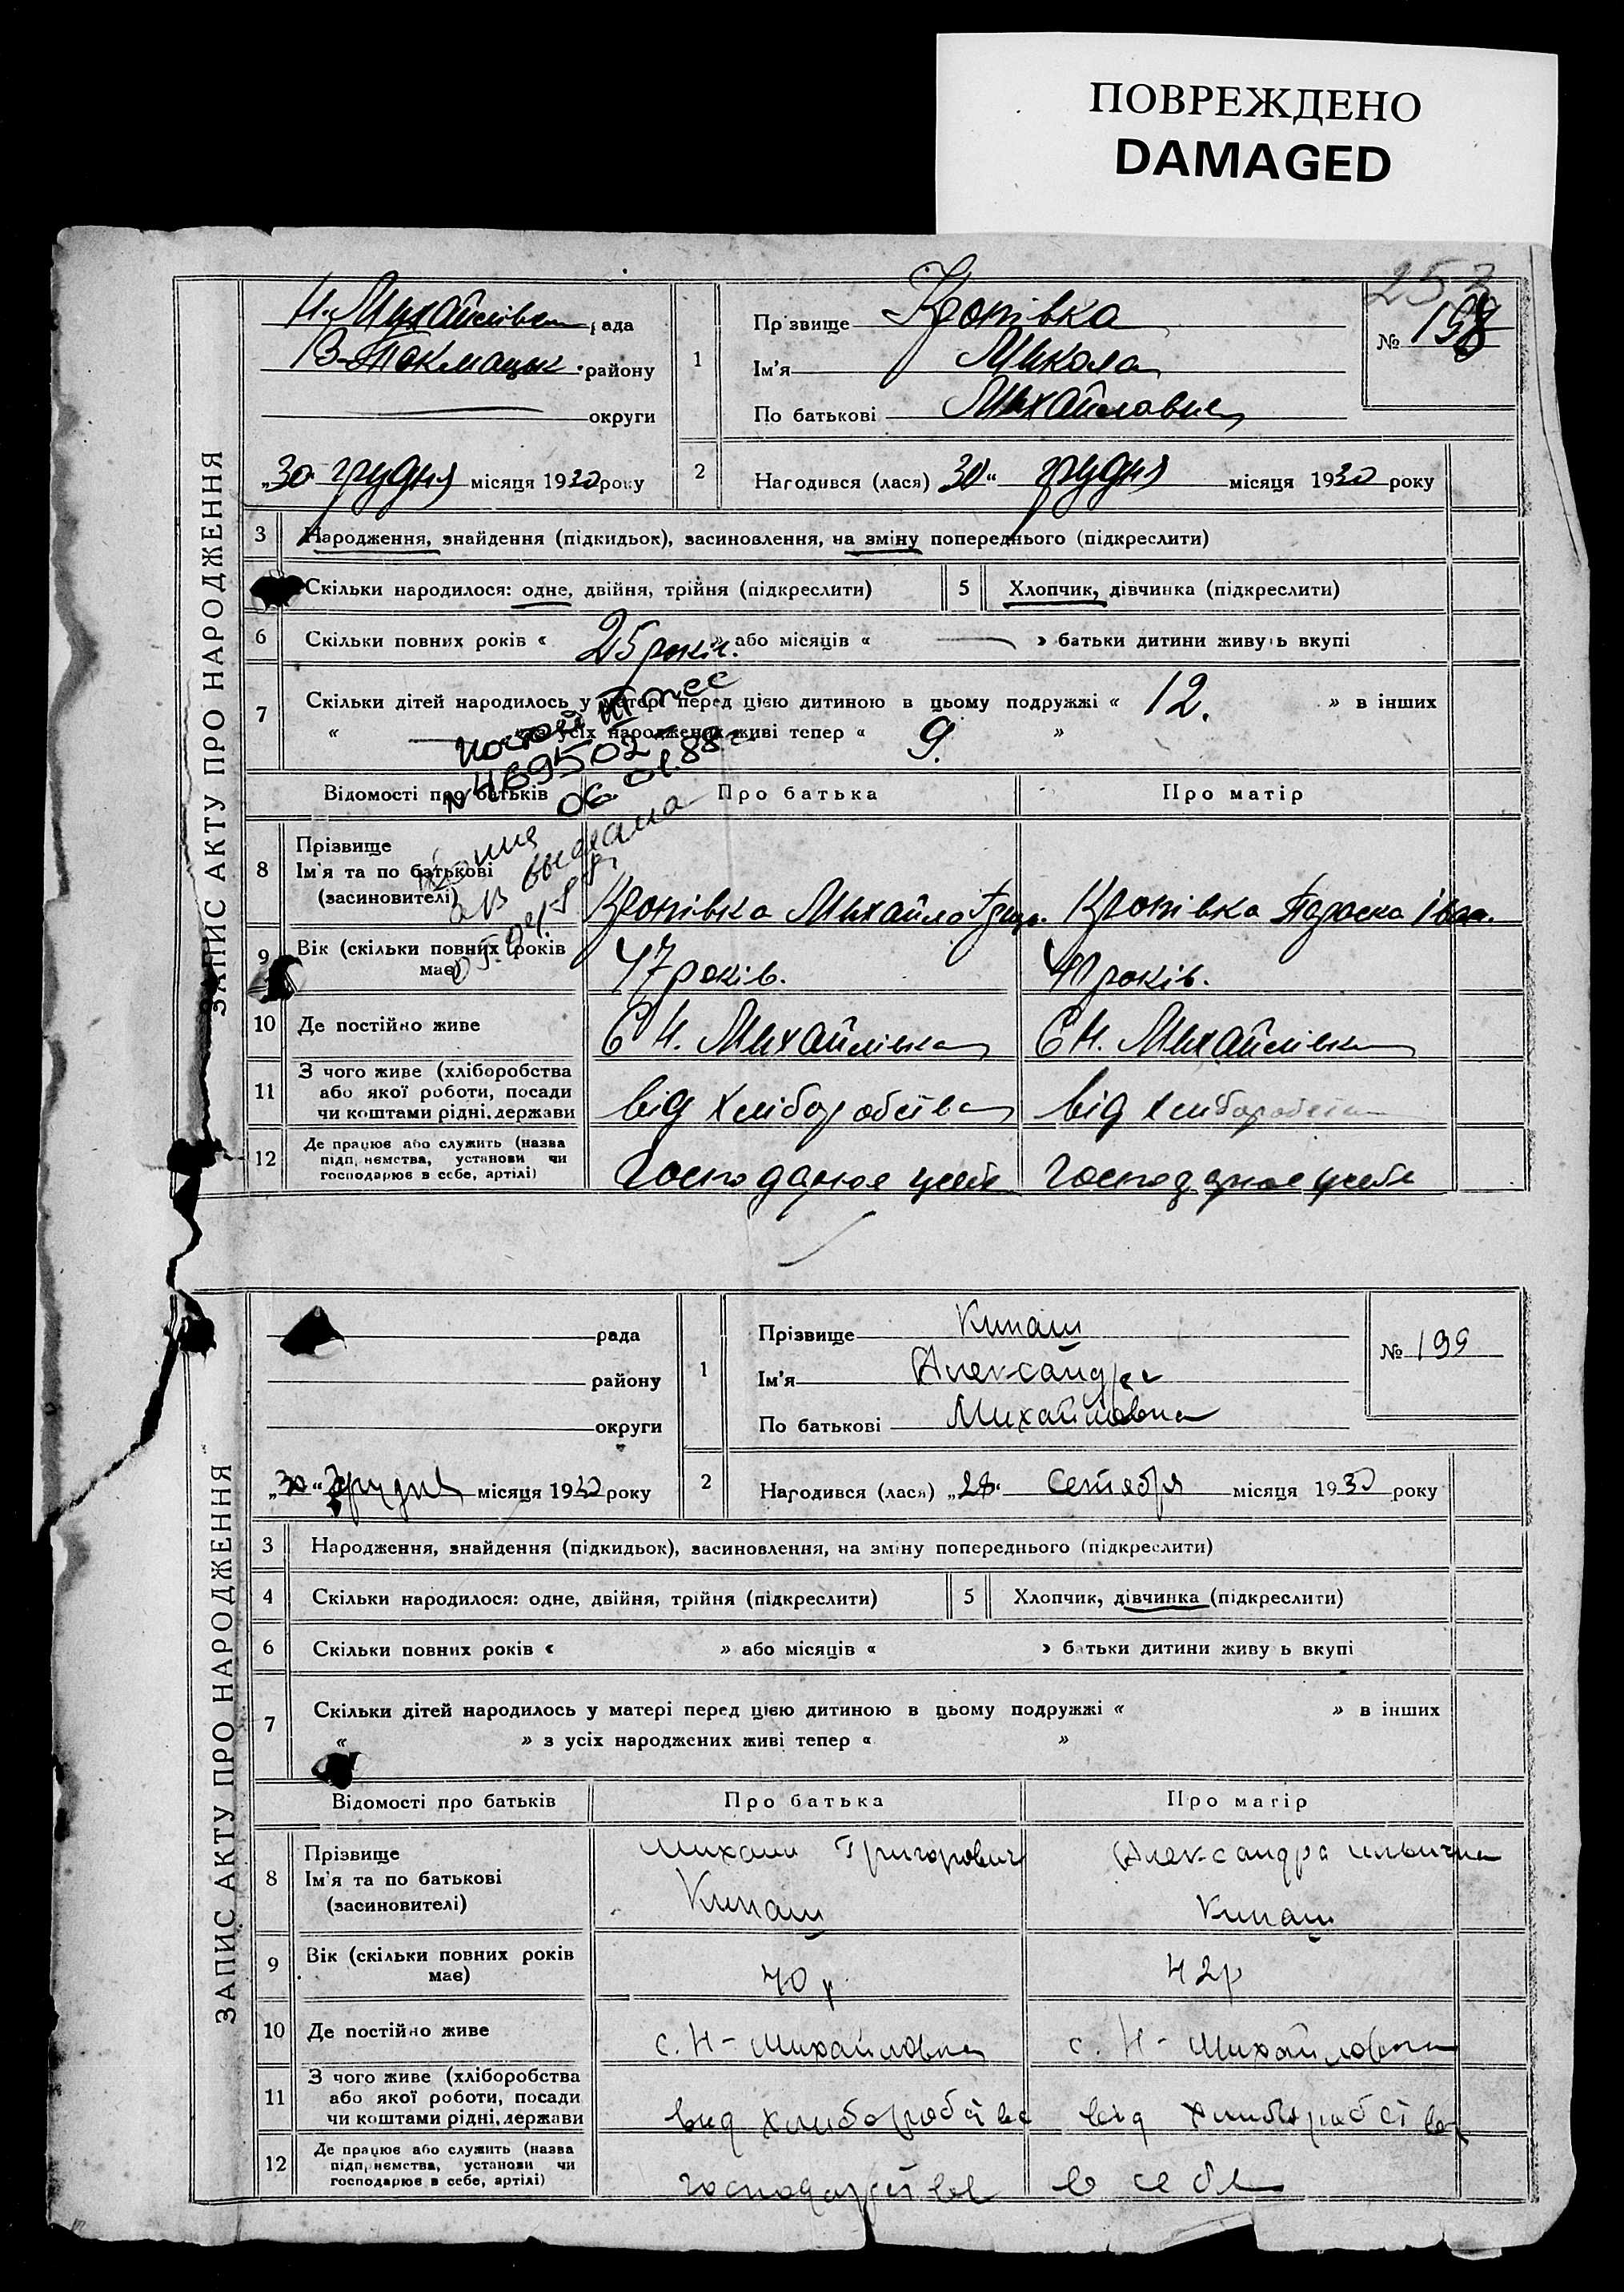 ПОВРЕЖДЕНО
DAMAGED
253
Н. Михайлівка рада
В-Токмацьк. району
округи
1
Прізвище Кропівка
Ім'я Микола
По батькові Михайлович
№ 198
„30 грудня місяця 1930 року
2
Народився (лася) 30“ грудня місяця 1930 року
ЗАПИС АКТУ ПРО НАРОДЖЕННЯ
3 Народження, знайдення (підкидьок), засиновлення, на зміну попереднього (підкреслити)
Скільки народилося: одне, двійня, трійня (підкреслити)
5 Хлопчик, дівчинка (підкреслити)
6 Скільки повних років « 25 років. » або місяців « — » батьки дитини живуть вкупі
7 Скільки дітей народилось у матері перед цією дитиною в цьому подружжі « 12. » в інших
« — » з усіх народжених живі тепер « 9. »
№ 469502
06.01.88г
выдана
Відомості про батьків
Про батька
Про матір
8 Прізвище
Ім'я та по батькові
(засиновителі)
Кропівка Михайло Григ.
Кропівка Параска Іван.
9 Вік (скільки повних років
має)
47 років.
років.
10 Де постійно живе
С Н. Михайлівка
С Н. Михайлівка
11 З чого живе (хліборобства
або якої роботи, посади
чи коштами рідні, держави
від хліборобства
від хліборобства
12 Де працює або служить (назва
підприємства, установи чи
господарює в себе, артілі)
Господарює у себе
Господарює у себе
рада
району
округи
1
Прізвище Кипаш
Ім'я Александра
По батькові Михайловна
№ 199
„30“ грудня місяця 1930 року
2
Народився (лася) „28“ Сентября місяця 1930 року
ЗАПИС АКТУ ПРО НАРОДЖЕННЯ
3 Народження, знайдення (підкидьок), засиновлення, на зміну попереднього (підкреслити)
4 Скільки народилося: одне, двійня, трійня (підкреслити)
5 Хлопчик, дівчинка (підкреслити)
6 Скільки повних років « » або місяців « » батьки дитини живуть вкупі
7 Скільки дітей народилось у матері перед цією дитиною в цьому подружжі « » в інших
« » з усіх народжених живі тепер « »
Відомості про батьків
Про батька
Про матір
8 Прізвище
Ім'я та по батькові
(засиновителі)
Михаил Григорович
Кипаш
Александра Ильична
Кипаш
9 Вік (скільки повних років
має)
40 р
42 р
10 Де постійно живе
с. Н-Михайловка
с. Н-Михайловка
11 З чого живе (хліборобства
або якої роботи, посади
чи коштами рідні, держави
вид хлиборобства
від хлиборобства
12 Де працює або служить (назва
підприємства, установи чи
господарює в себе, артілі)
господарствє
в себя